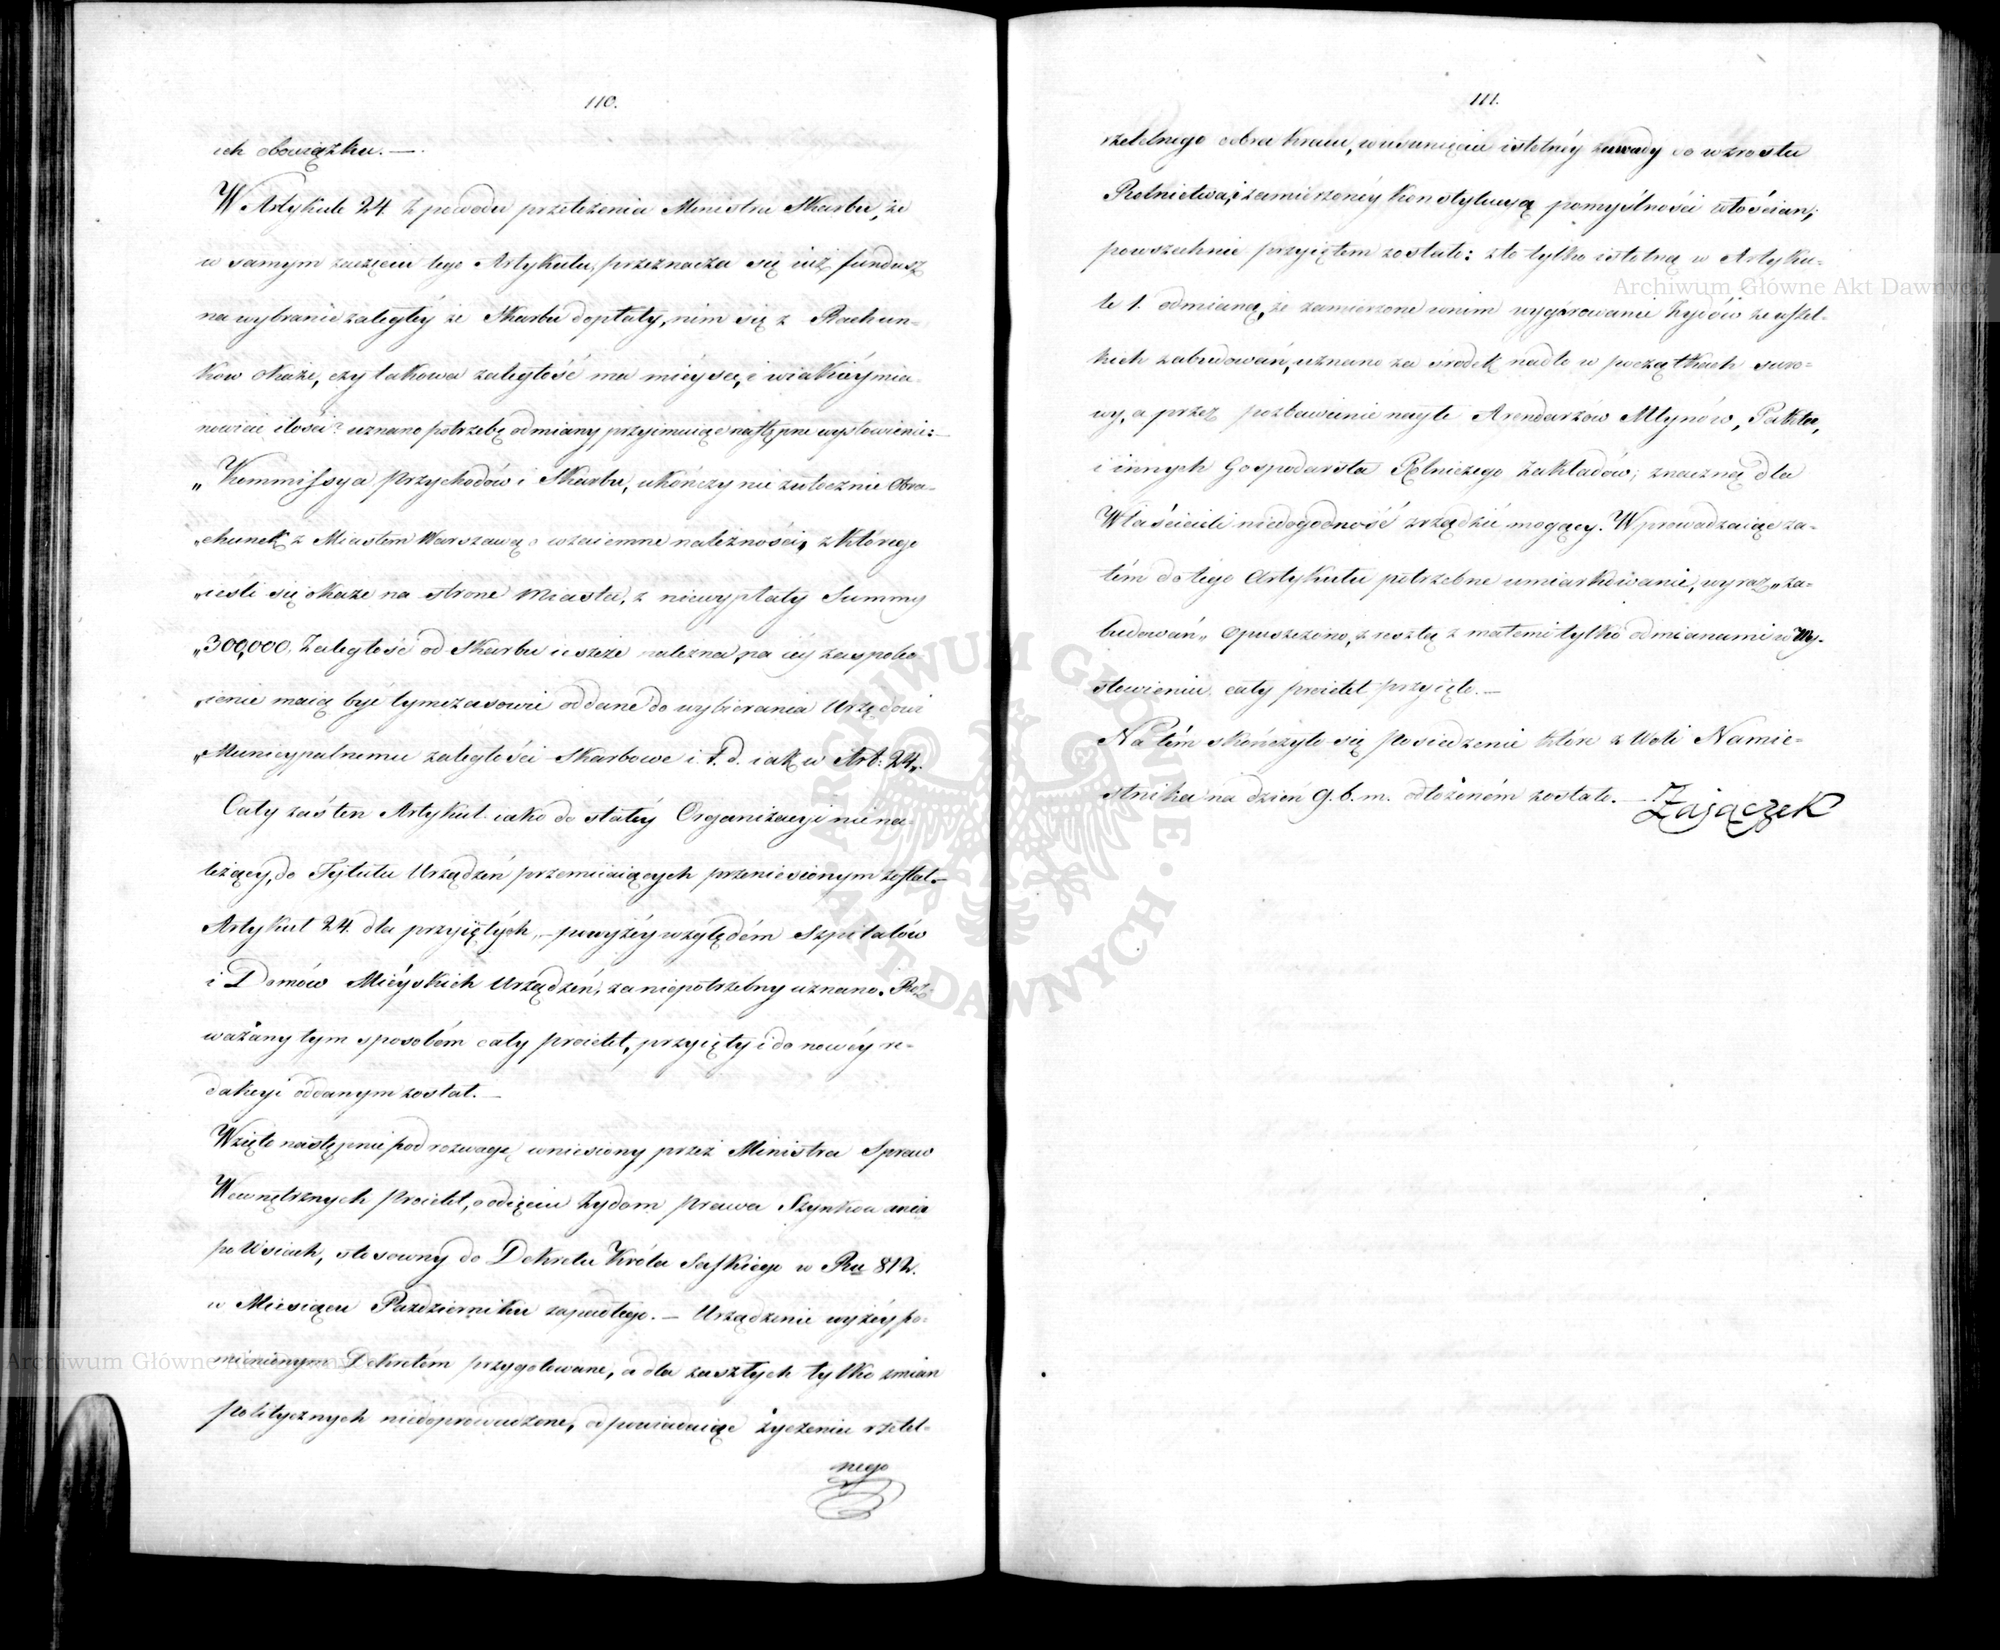 110.
ich obowiązku. —
W Artykule 24. z powodu przełożenia Ministra Skarbu, że
w samym zaczęciu tego Artykułu, przeznacza się iuż fundusz
na wybranie zaległéy ze Skarbu dopłaty, nim się z Rachun-
ków okaże, czy takowa zaległość ma mieysce, i w iakiéy mia-
nowicie ilości? uznano potrzebę odmiany przyimuiąc nastę̨pne wysłowienie: —
„Kommissya Przychodów i Skarbu, ukończy niezwłocznie Obra-
„chunek z Miastem Warszawą o wzaiemne należności, z którego
„iesli się okaże na stronę Miasta, z niewypłaty Summy
„300,000. Zaległość od Skarbu ieszcze należna, na iéy zaspoko-
„ienie maią być tymczasowie oddane do wybierania Urzędowi
„Municypalnemu zaległości Skarbowe i. t. d. iak w Art: 24„.
Cały zaś ten Artykuł iako do stałéy Organizacyi nie na-
leżący, do Tytułu Urządzeń przemiiaiących przeniesionym został. —
Artykuł 24. dla przyiętych, powyżéy względem Szpitalów
i Domów Mieyskich Urządzeń, za niepotrzebny uznano. Roz-
ważany tym sposobem cały proiekt, przyięty i do nowéy re-
dakcyi oddanym został. —
Wzięto następnie pod rozwagę wniesiony przez Ministra Spraw
Wewnętrznych Proiekt, o odięciu Żydom prawa Szynkowania
po Wsiach, stosowny do Dekretu Króla Saskiego w Ru 812.
w Miesiącu Październiku zapadłego. — Urządzenie wyżéy po-
mienionym Dekretem przygotowane, a dla zaszłych tylko zmian
politycznych niedoprowadzone, odpowiadaiąc życzeniu rzetel-
nego
111.
rzetelnego dobra kraiu, w usunięciu istotnéy zawady do wzrostu
Rolnictwa, i zamierzonéy Konstytucyą pomyślności włościan,
powszechnie przyiętem zostało: z tą tylko istotną w Artyku-
le 1. odmianą, że zamierzone w nim wygórowanie Żydów ze wszel-
kich zabudowań, uznano za środek nadto w początkach suro-
wy, a przez pozbawienie nagłe Arendarzów Młynów, Paktów,
i innych Gospodarstwa Rolniczego Zakładów, znaczną dla
Właścicieli niedogodność zrządzić mogący. Wprowadzaiąc za-
tém do tego Artykułu potrzebne umiarkowanie, wyraz „za-
budowań„ opuszczono, z resztą z małemi tylko odmianami w Wy-
słowieniu cały proiekt przyięto. —
Na tém skończyło się posiedzenie które z Woli Namie-
stnika na dzień 9. b. m. odłożoném zostało. —
Zajączek
ARCHIWUM GŁÓWNE AKT DAWNYCH
Archiwum Główne Akt Dawnych
Archiwum Główne Akt Dawnych